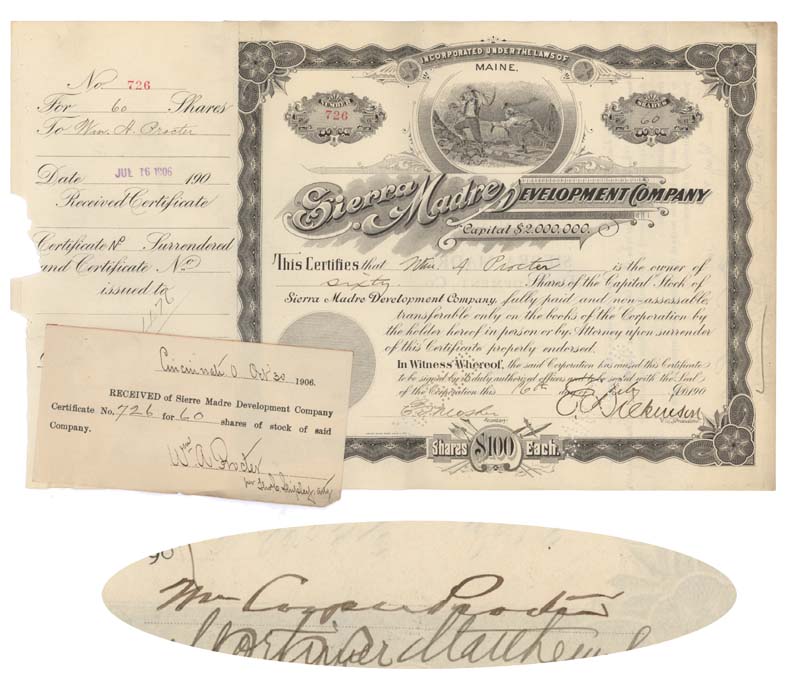 No. 726
For 60 Shares
To Wm. A. Procter
Date JUL 16 1906 190
Received Certificate
Certificate No Surrendered
and Certificate No.
issued to
1176
INCORPORATED UNDER THE LAWS OF
MAINE.
NUMBER
726
SHARES
60
Sierra Madre DEVELOPMENT COMPANY
Capital $2,000,000.
This Certifies that Wm. A Procter is the owner of
sixty Shares of the Capital Stock of
Sierra Madre Development Company, fully paid and non-assessable,
transferable only on the books of the Corporation by
the holder hereof in person or by Attorney upon surrender
of this Certificate properly endorsed.
In Witness Whereof, the said Corporation has caused this Certificate
to be signed by its duly authorized officers and to be sealed with the Seal
of the Corporation this 16th day of July 190
Secretary
President
Shares $100 Each.
Cincinnati O Oct 30 1906.
RECEIVED of Sierre Madre Development Company
Certificate No. 726 for 60 shares of stock of said
Company.
Wm A Procter
per atty
90
Wm Cooper Procter
Mortimer Matthews